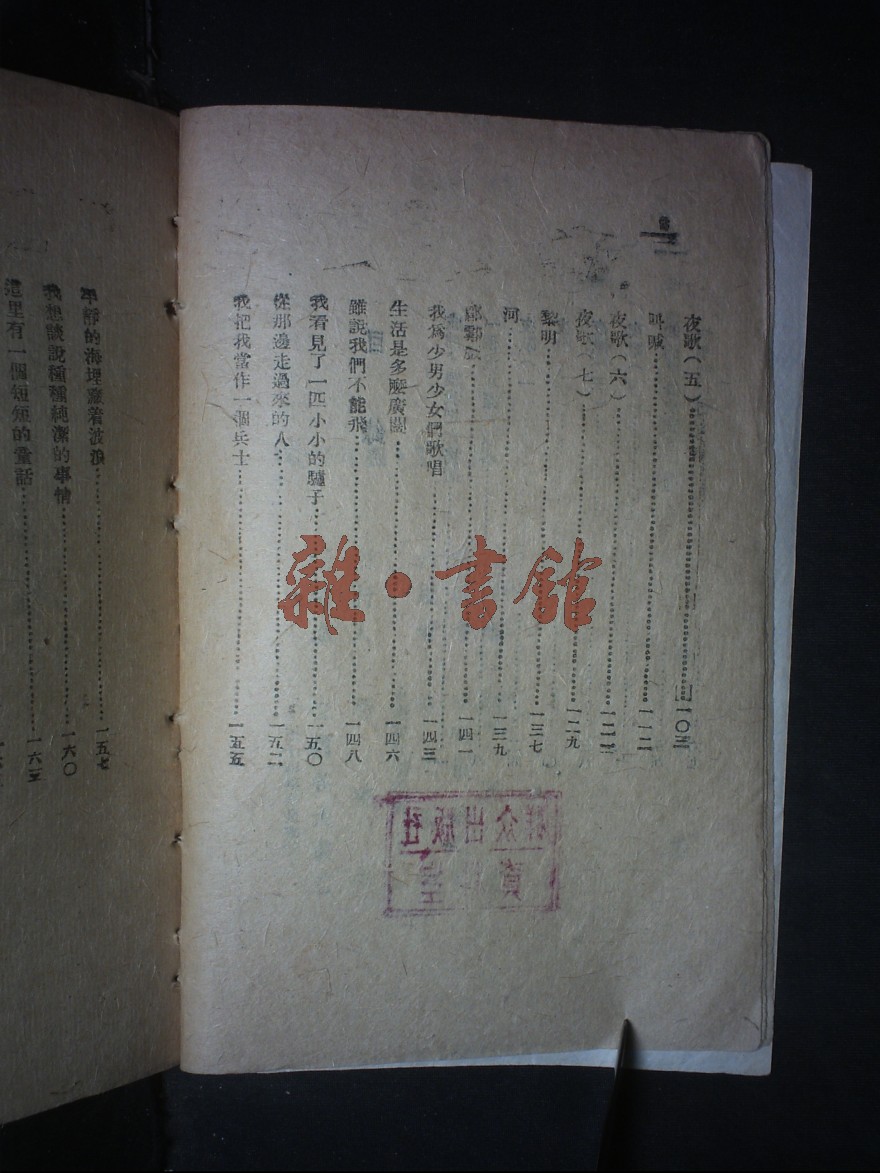 夜歌(五)……一〇三
叫喊……一一二
夜歌(六)……
夜歌(七)……一二九
黎明……一三七
河……一三九
郿鄠戲……一四一
我爲少男少女們歌唱……一四三
生活是多麼廣闊……一四六
雖說我們不能飛……一四八
我看見了一匹小小的驢子……一五〇
從那邊走過來的人……一五二
我把我當作一個兵士……一五五
平靜的海埋藏着波浪……一五七
我想談說種種純潔的事情……一六〇
這里有一個短短的童話……
雜·書館
群众出版社